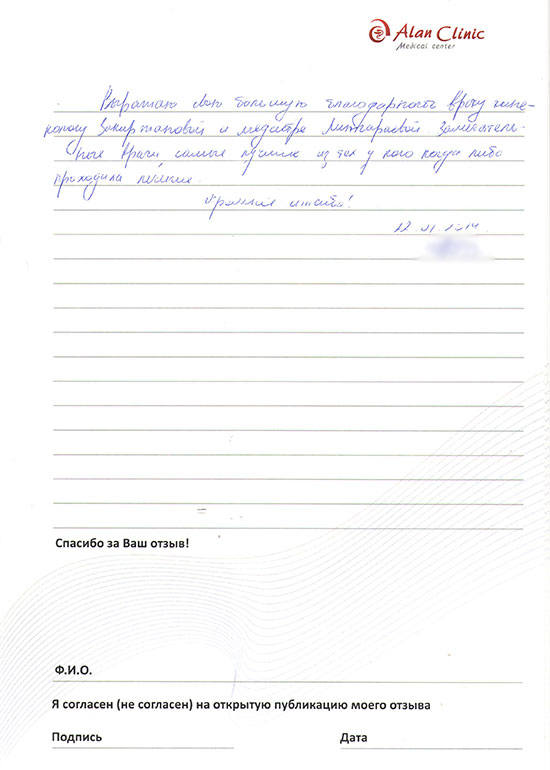 Alan Clinic
Medical center
Выражаю свою большую благодарность врачу гине-
кологу Закиржановой и медсестре Мингараевой. Замечатель-
ные врачи самые лучшие из тех у кого когда либо
проходила лечение.
Огромное спасибо!
Спасибо за Ваш отзыв!
Ф.И.О.
Я согласен (не согласен) на открытую публикацию моего отзыва
Подпись Дата